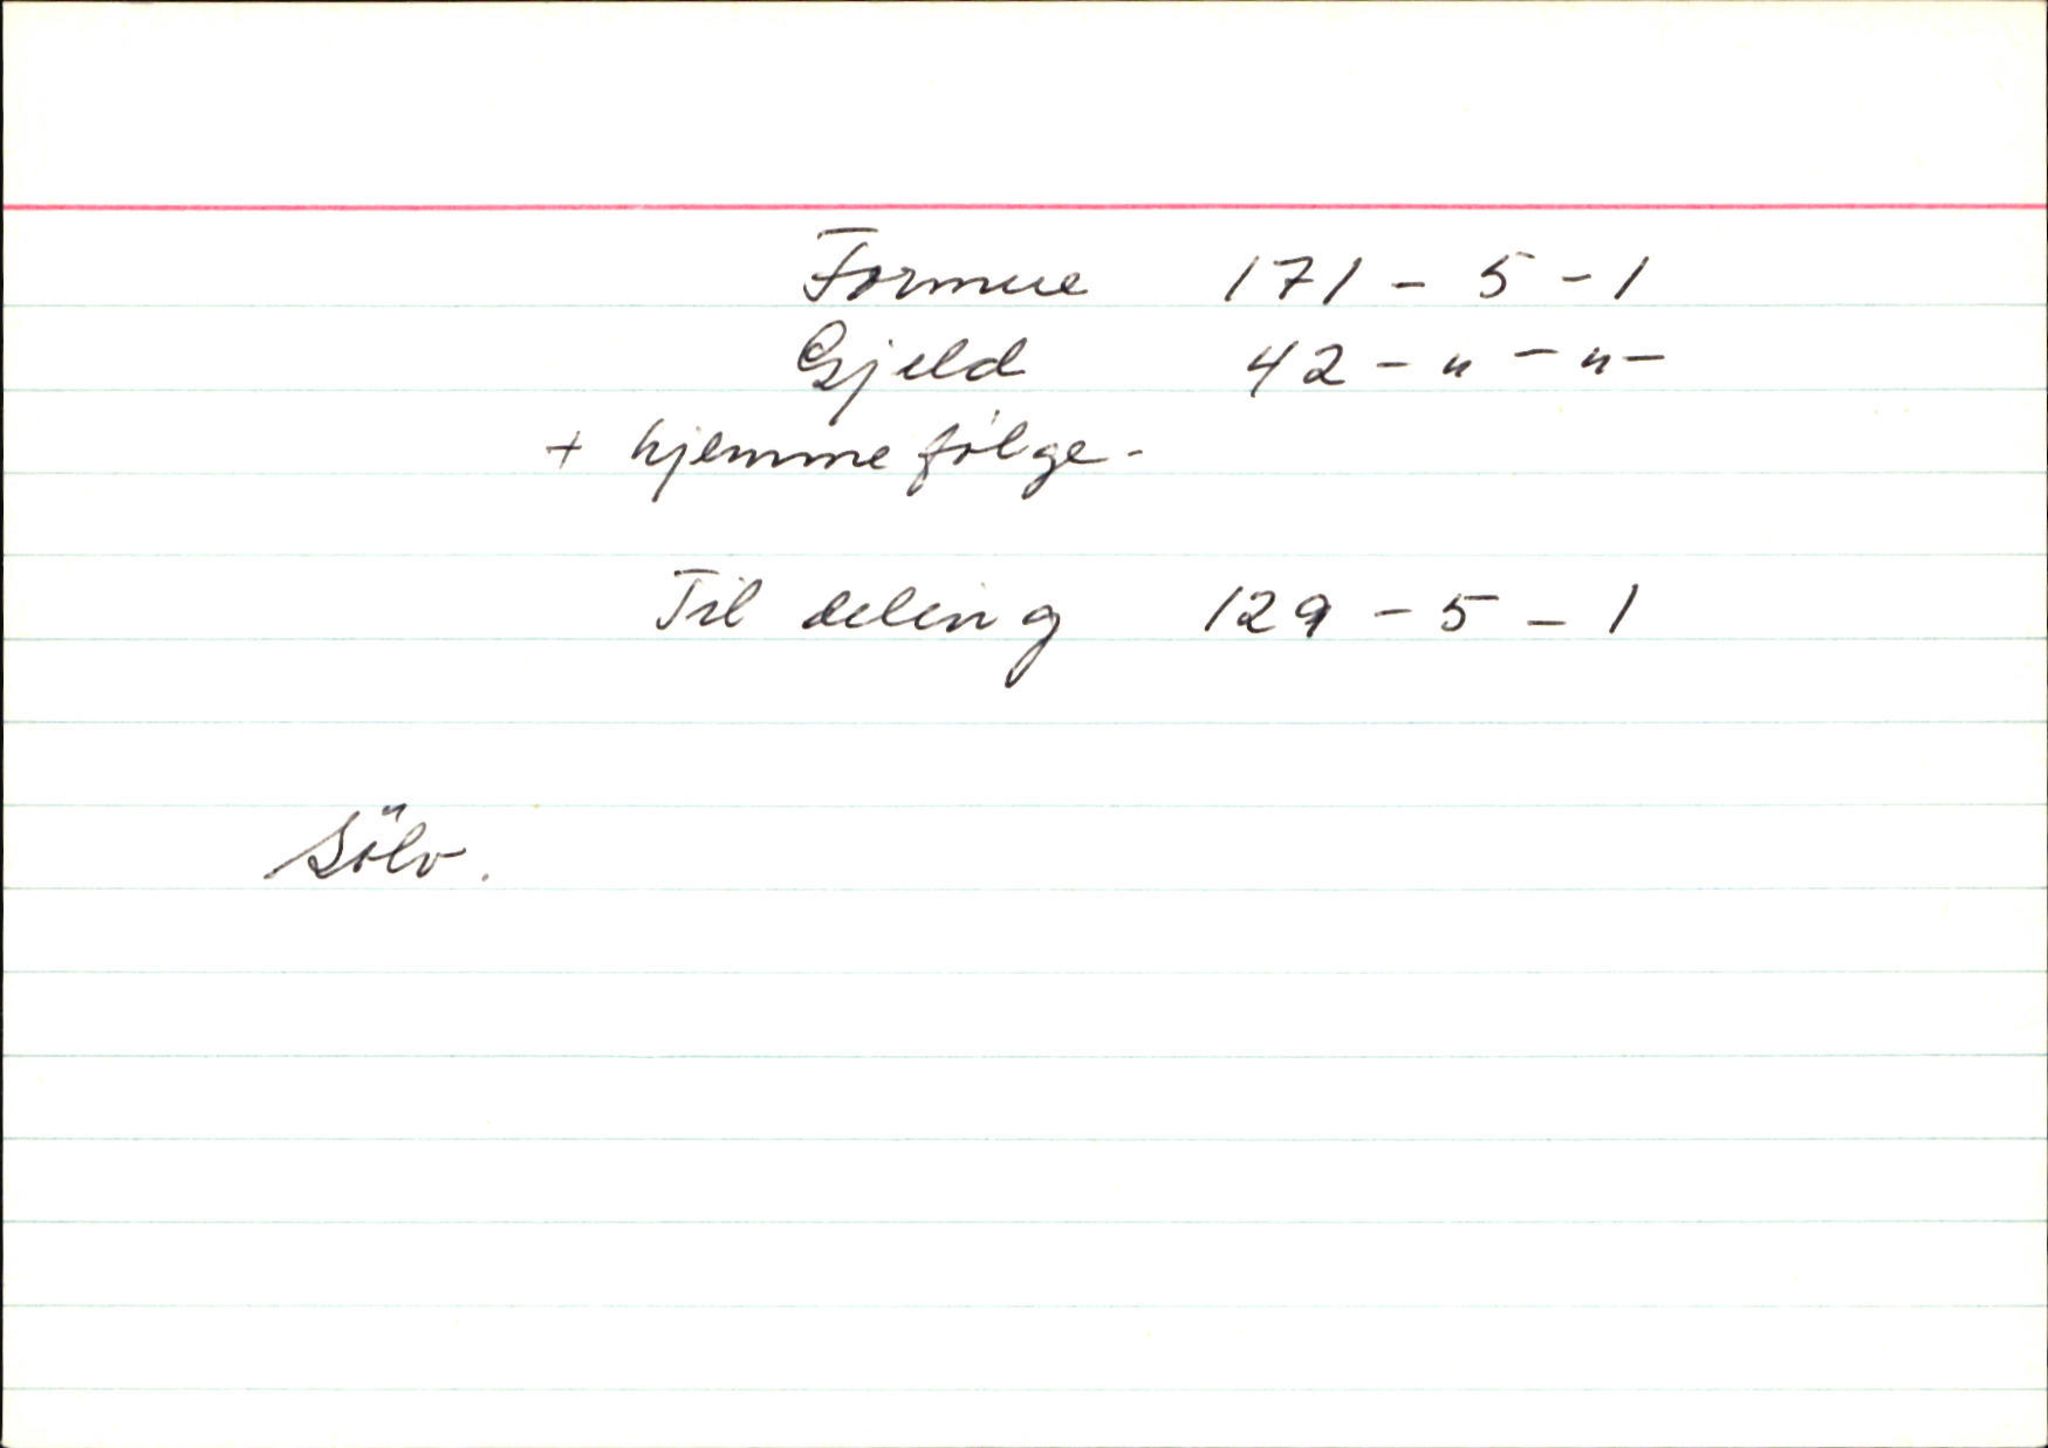 Formue 171 - 5 - 1
Gjeld 42 - " - " -
+ hjemmefölge -
Til deling 129 - 5 - 1
Sölv.